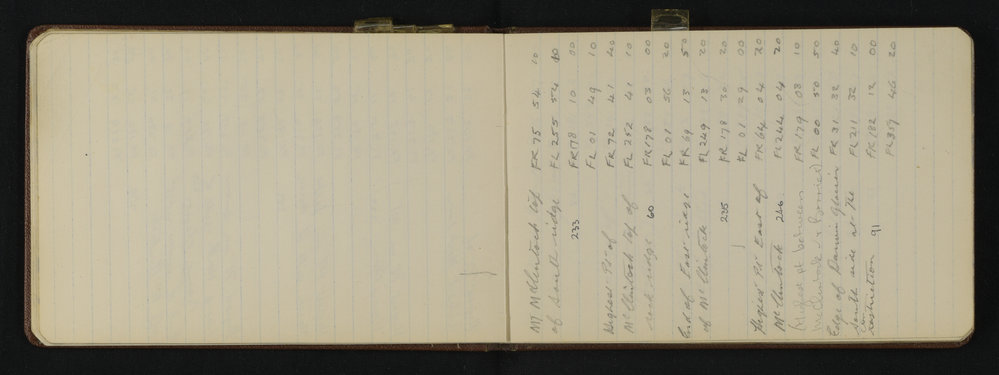 Mt McClintock top FR 75 54 10
of South ridge FL 255 54 60
233 FR 178 10 00
FL 01 49 10
Highest Pt of FR 72 41 40
McClintock top of FL 252 41 10
ridge 60 FR 178 03 00
FL 01 56 20
End of East ridge FR 69 13 50
of McClintock FL 249 13 20
235 FR 178 30 20
FL 01 29 00
Highest Pt East of FR 64 04 20
McClintock 246 FL 244 04 20
between FR 179 08 10
McClintock FL 00 50 50
Edge of Darwin Glacier FR 31 32 40
South side at the FL 211 32 10
91 FR 182 12 00
FL 359 46 20